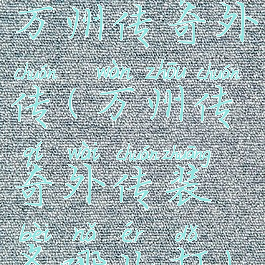 万州传奇外
chuán wàn zhōu chuán
传(万州传
qí wài chuán zhuāng
奇外传装